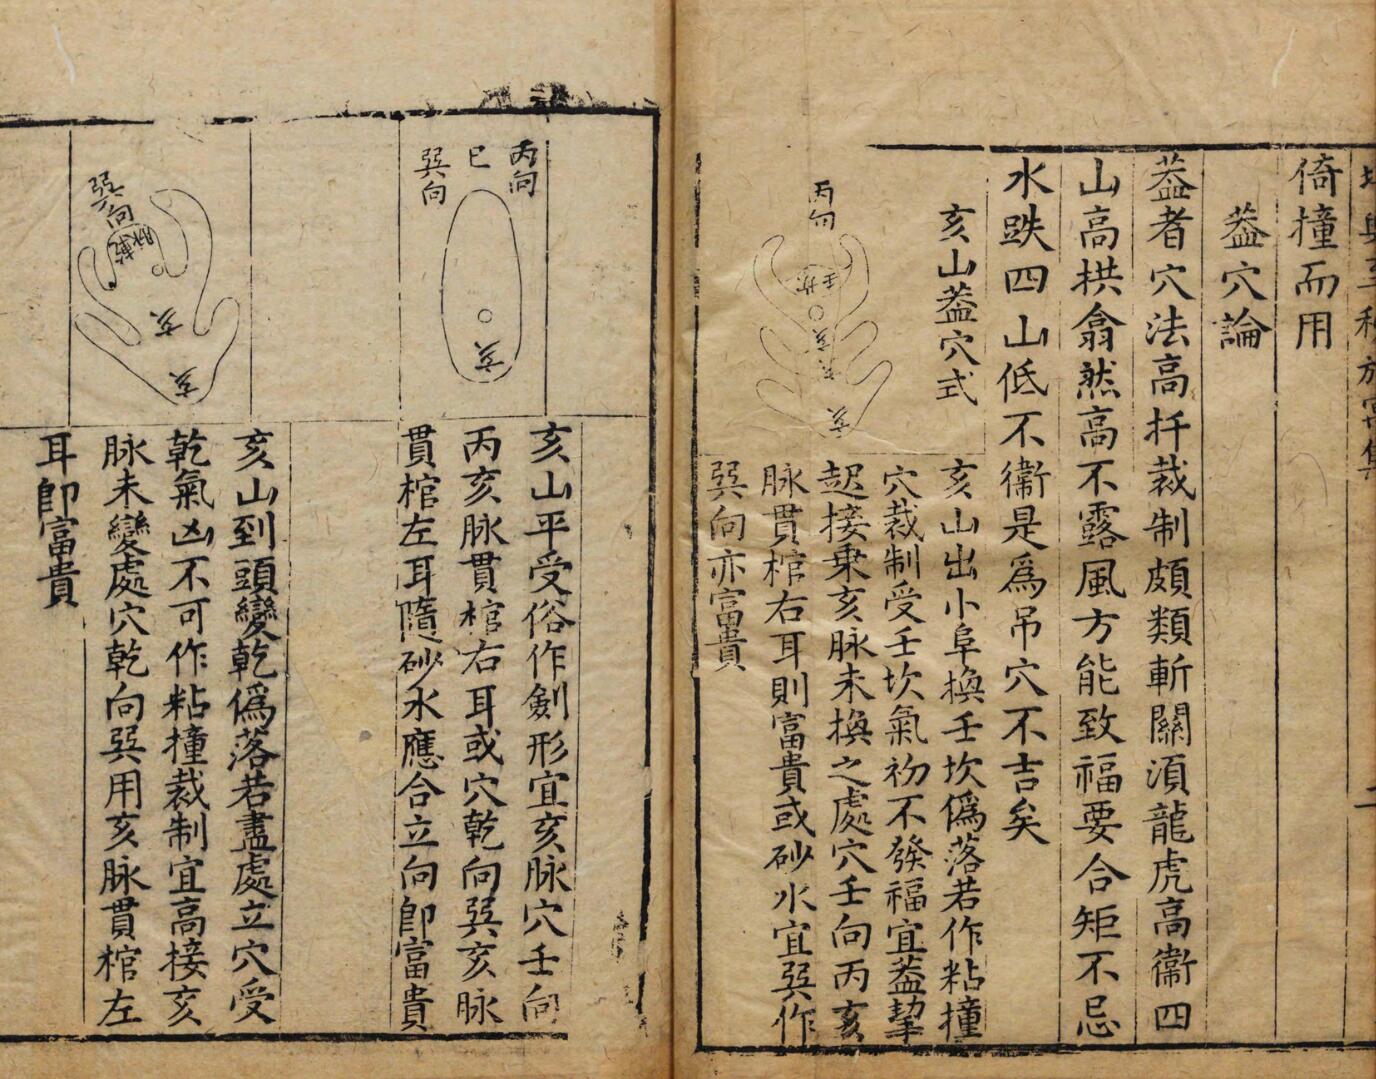 倚撞而用
葢穴論
葢者穴法高扦裁制頗類斬關湏龍虎高衞四
山高拱翕然高不露風方能致福要合矩不忌
水跌四山低不衞是爲吊穴不吉矣
亥山葢穴式
丙向
壬坎
亥
亥
亥
亥山出小阜換壬坎僞落若作粘撞
穴裁制受壬坎氣初不發福宜葢挈
起接乗亥脉未換之處穴壬向丙亥
脉貫棺右耳則富貴或砂水宜巽作
巽向亦富貴
丙向
巳
巽向
亥
亥山平受俗作劍形宜亥脉穴壬向
丙亥脉貫棺右耳或穴乾向巽亥脉
貫棺左耳隨砂水應合立向卽富貴
巽向
乾
脉
亥
亥
亥山到頭變乾僞落若盡處立穴受
乾氣凶不可作粘撞裁制宜高接亥
脉未變處穴乾向巽用亥脉貫棺左
耳卽富貴